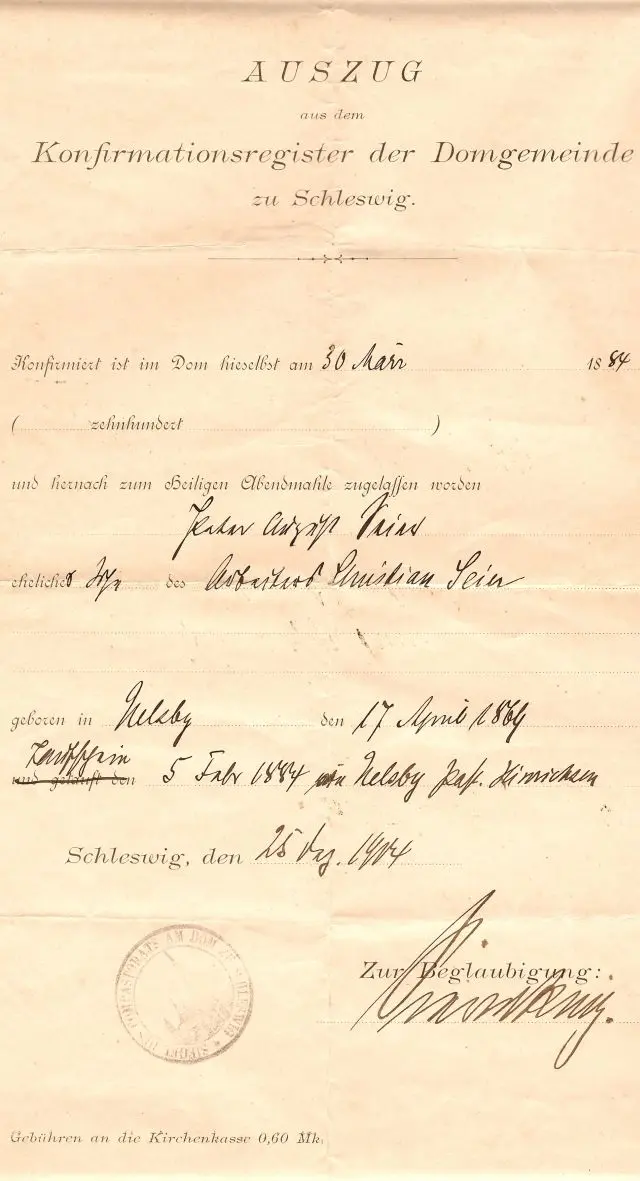 AUSZUG
aus dem
Konfirmationsregister der Domgemeinde
zu Schleswig.
Konfirmiert ist im Dom hieselbst am 30 März 1884
( zehnhundert )
und hernach zum Heiligen Abendmahle zugelassen worden
Peter August Seier
ehelicher Sohn des Arbeiters Christian Seier
geboren in Uelsby den 17 April 1869
Taufschein
und getauft den 5 Febr 1884 Uelsby Past. Hinrichsen
Schleswig, den 25 Dez. 1904
AM DOM ZU SCHLESWIG
Zur Beglaubigung:
Gebühren an die Kirchenkasse 0,60 Mk.